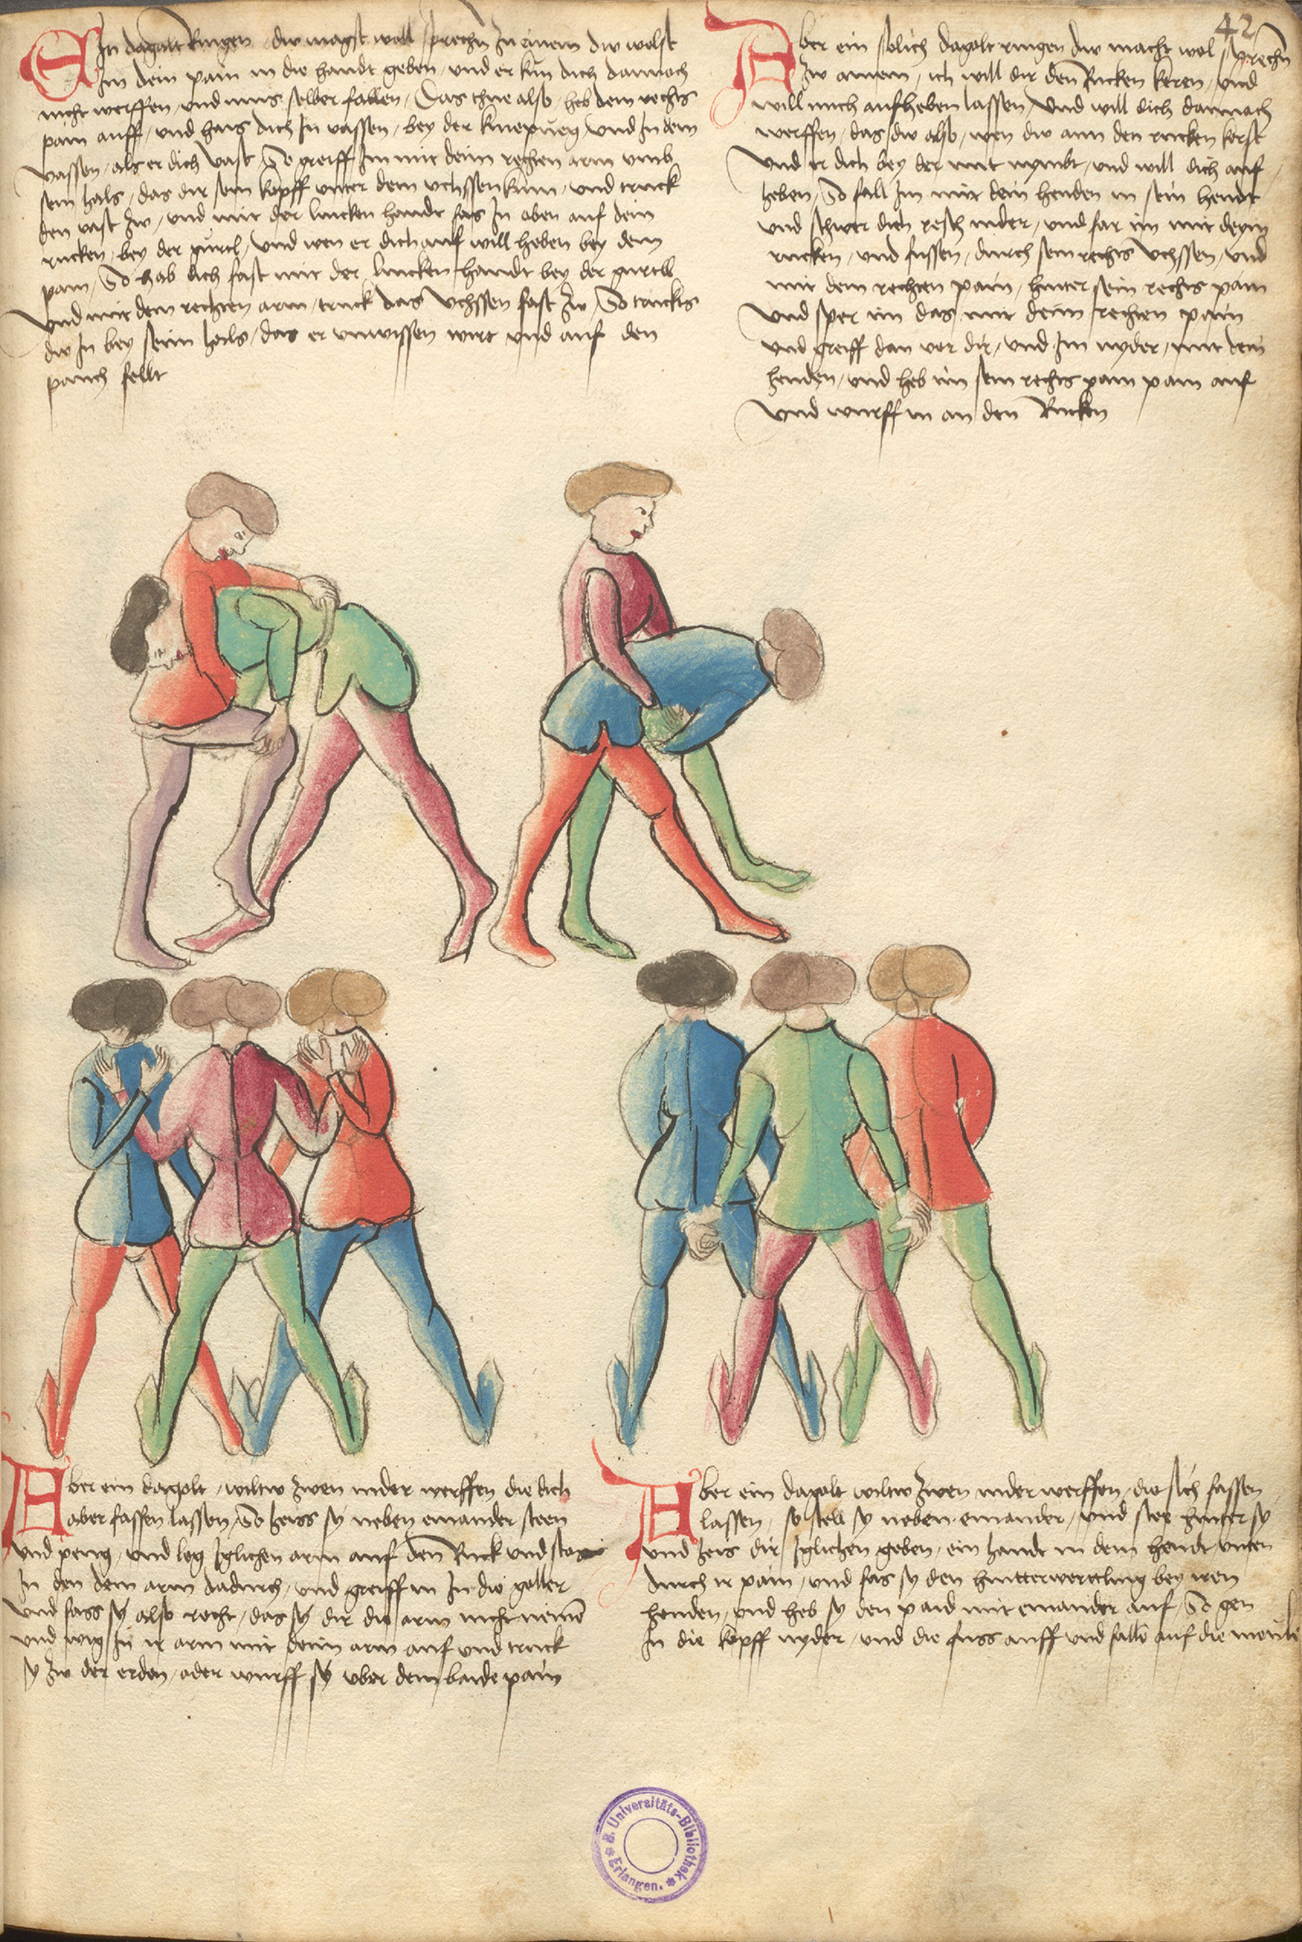 42
Ein dagalt Ringen / dw magst woll sprechn zu einem dw wolst
Im dein pain in die handt geben / und er kun dich dannach
nicht werffen / und mus selber fallen / Das thue also / heb dein rechts
pain auff / und hais dich In vassen / bey der kniepueg und In dem
vassen / als er dich vast So greiff Im mit deim rechen arm umb
sein hals / das dir sein kopff unter dem uchssen kum / und truck
den vast zw / und mit der lincken handt fas In oben auf dem
rucken / bey der gurtl / und wen er dich auf will heben bey dem
pain / So hab dich fast mit der lincken handt bey der gurtll
Und mit dem rechten arm / truck das Uchssen fast zw / So truckts
dw In bey seim hals / das er unwissen wirt und auf den
pauch fellt
Aber ein solich dagalt ringen dw macht wol sprechn
zw ainem / ich will dir den Rucken keren / und
will mich aufheben lassen Und will dich dannach
werffen / das dw also / wen dw ann den rucken kerst
Und er dich bey der mit nymbt / und will dich auf
heben / So fall Im mit dein henden in sein hendt
und schwer dich resch nider / und far im mit deym
rucken / und fussen / durch sein rechts Uchssen / und
mit dem rechten pain / hinter sein rechts pain
Und sper im das mit deim rechten pain
und greiff dan vor dir / und Im nyder / mit dein
henden / und heb im sein rechts pain pain auf
Und wurff in an den Rucken
Aber ein dagalt / wiltw zwen nider werffen die dich
aber fassen lassen / So haiss sy neben einander steen
und / und leg Iglichen arm auf den Ruck und stos
In den dein arm dadurch / und greiff in In die goller
Und fass sy also recht / das sy dir die arm nicht nemen
und wig In ir arm mit deim arm auf und truck
sy zw der erden / oder wurff sy uber dein baide pain
Aber ein dagalt wiltw zwen nider werffen / die sich fassen
lassen / so stell sy neben einander / und stee hinter sy
und hais dir Iglichen geben / ein handt in dein hendt unten
durch ir pain / und fas sy den hinterwertling bey iren
henden / und heb sy den paid mit einander auf / So gen
In die kopff nyder / und die fuss auff und falln auf die meuler
K. B. Universitäts-Bibliothek
Erlangen.